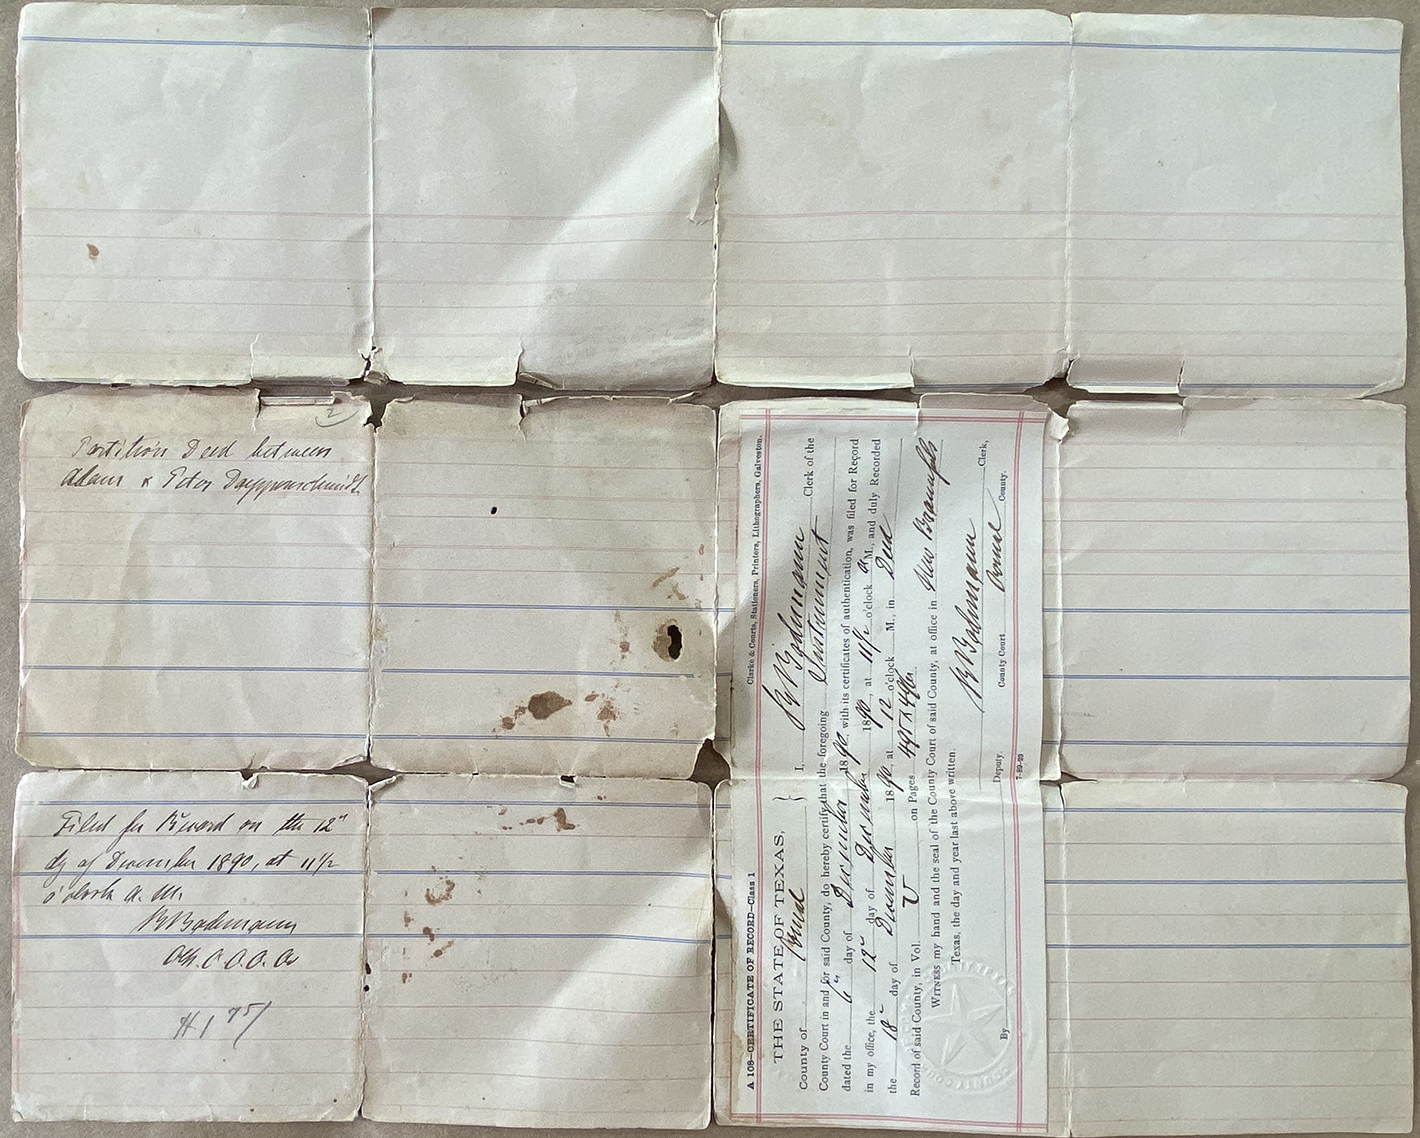 2
Partition Deed between
Adam & Peter Doeppenschmidt
Filed for Record on the 12"
dy of December 1890, at 11 1/2
o'clock A. M.
Bodemann
75/
A 108—CERTIFICATE OF RECORD—Class 1
Clarke & Courts, Stationers, Printers, Lithographers, Galveston.
THE STATE OF TEXAS, }
County of Comal I, Bodemann Clerk of the
County Court in and for said County, do hereby certify that the foregoing Instrument
dated the 6" day of December 1890 with its certificates of authentication, was filed for Record
in my office, the 12" day of December 1890, at 11 1/2 o'clock a M., and duly Recorded
the 18" day of December 1890 at 12 o'clock M., in Deed
Record of said County, in Vol. U on Pages
WITNESS my hand and the seal of the County Court of said County, at office in New Braunfels
Texas, the day and year last above written.
Bodemann Clerk,
By Deputy. County Court Comal County.
7-89-20